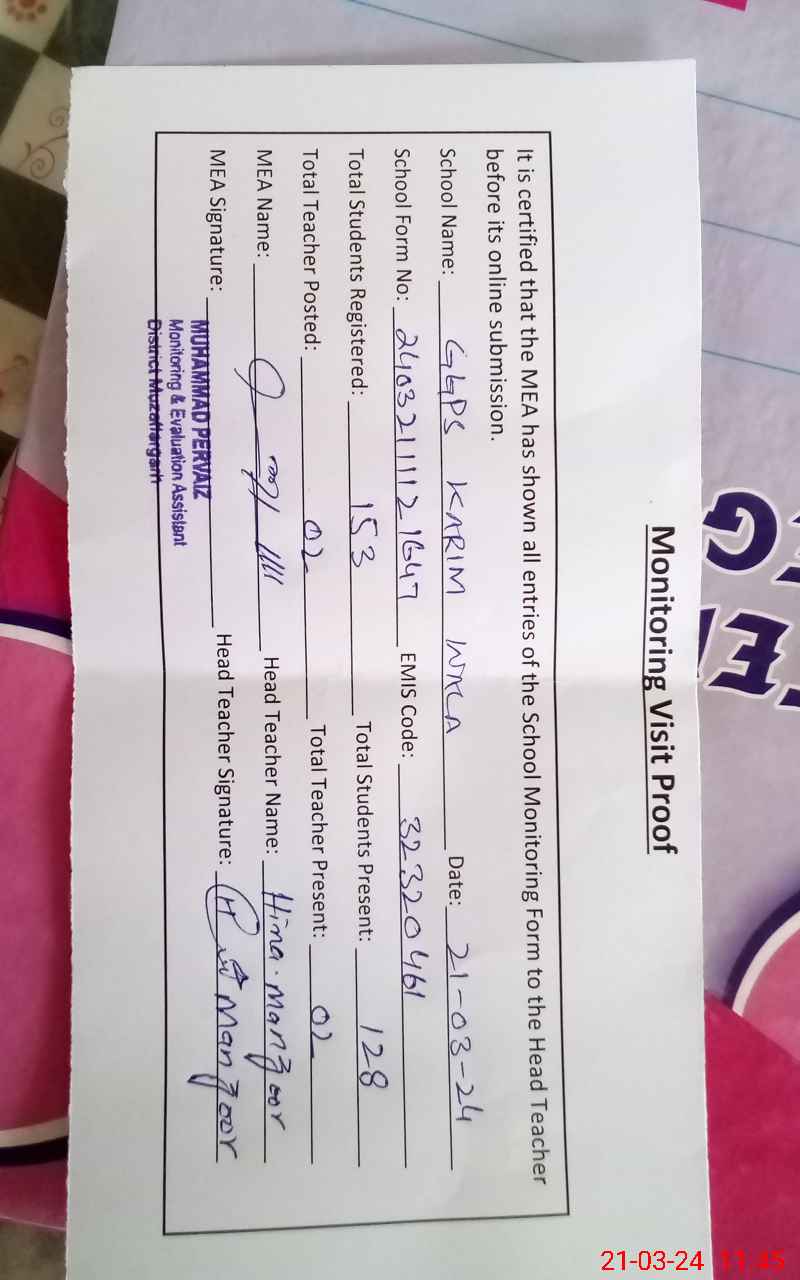 Monitoring Visit Proof
It is certified that the MEA has shown all entries of the School Monitoring Form to the Head Teacher
before its online submission.
School Name: GGPS KARIM WALA Date: 21-03-24
School Form No: 2403211121647 EMIS Code: 32320461
Total Students Registered: 153 Total Students Present: 128
Total Teacher Posted: 02 Total Teacher Present: 02
MEA Name: Head Teacher Name: Hina Manzoor
MEA Signature: Head Teacher Signature: Manzoor
MUHAMMAD PERVAIZ
Monitoring & Evaluation Assistant
District Muzaffargarh
21-03-24 11:45